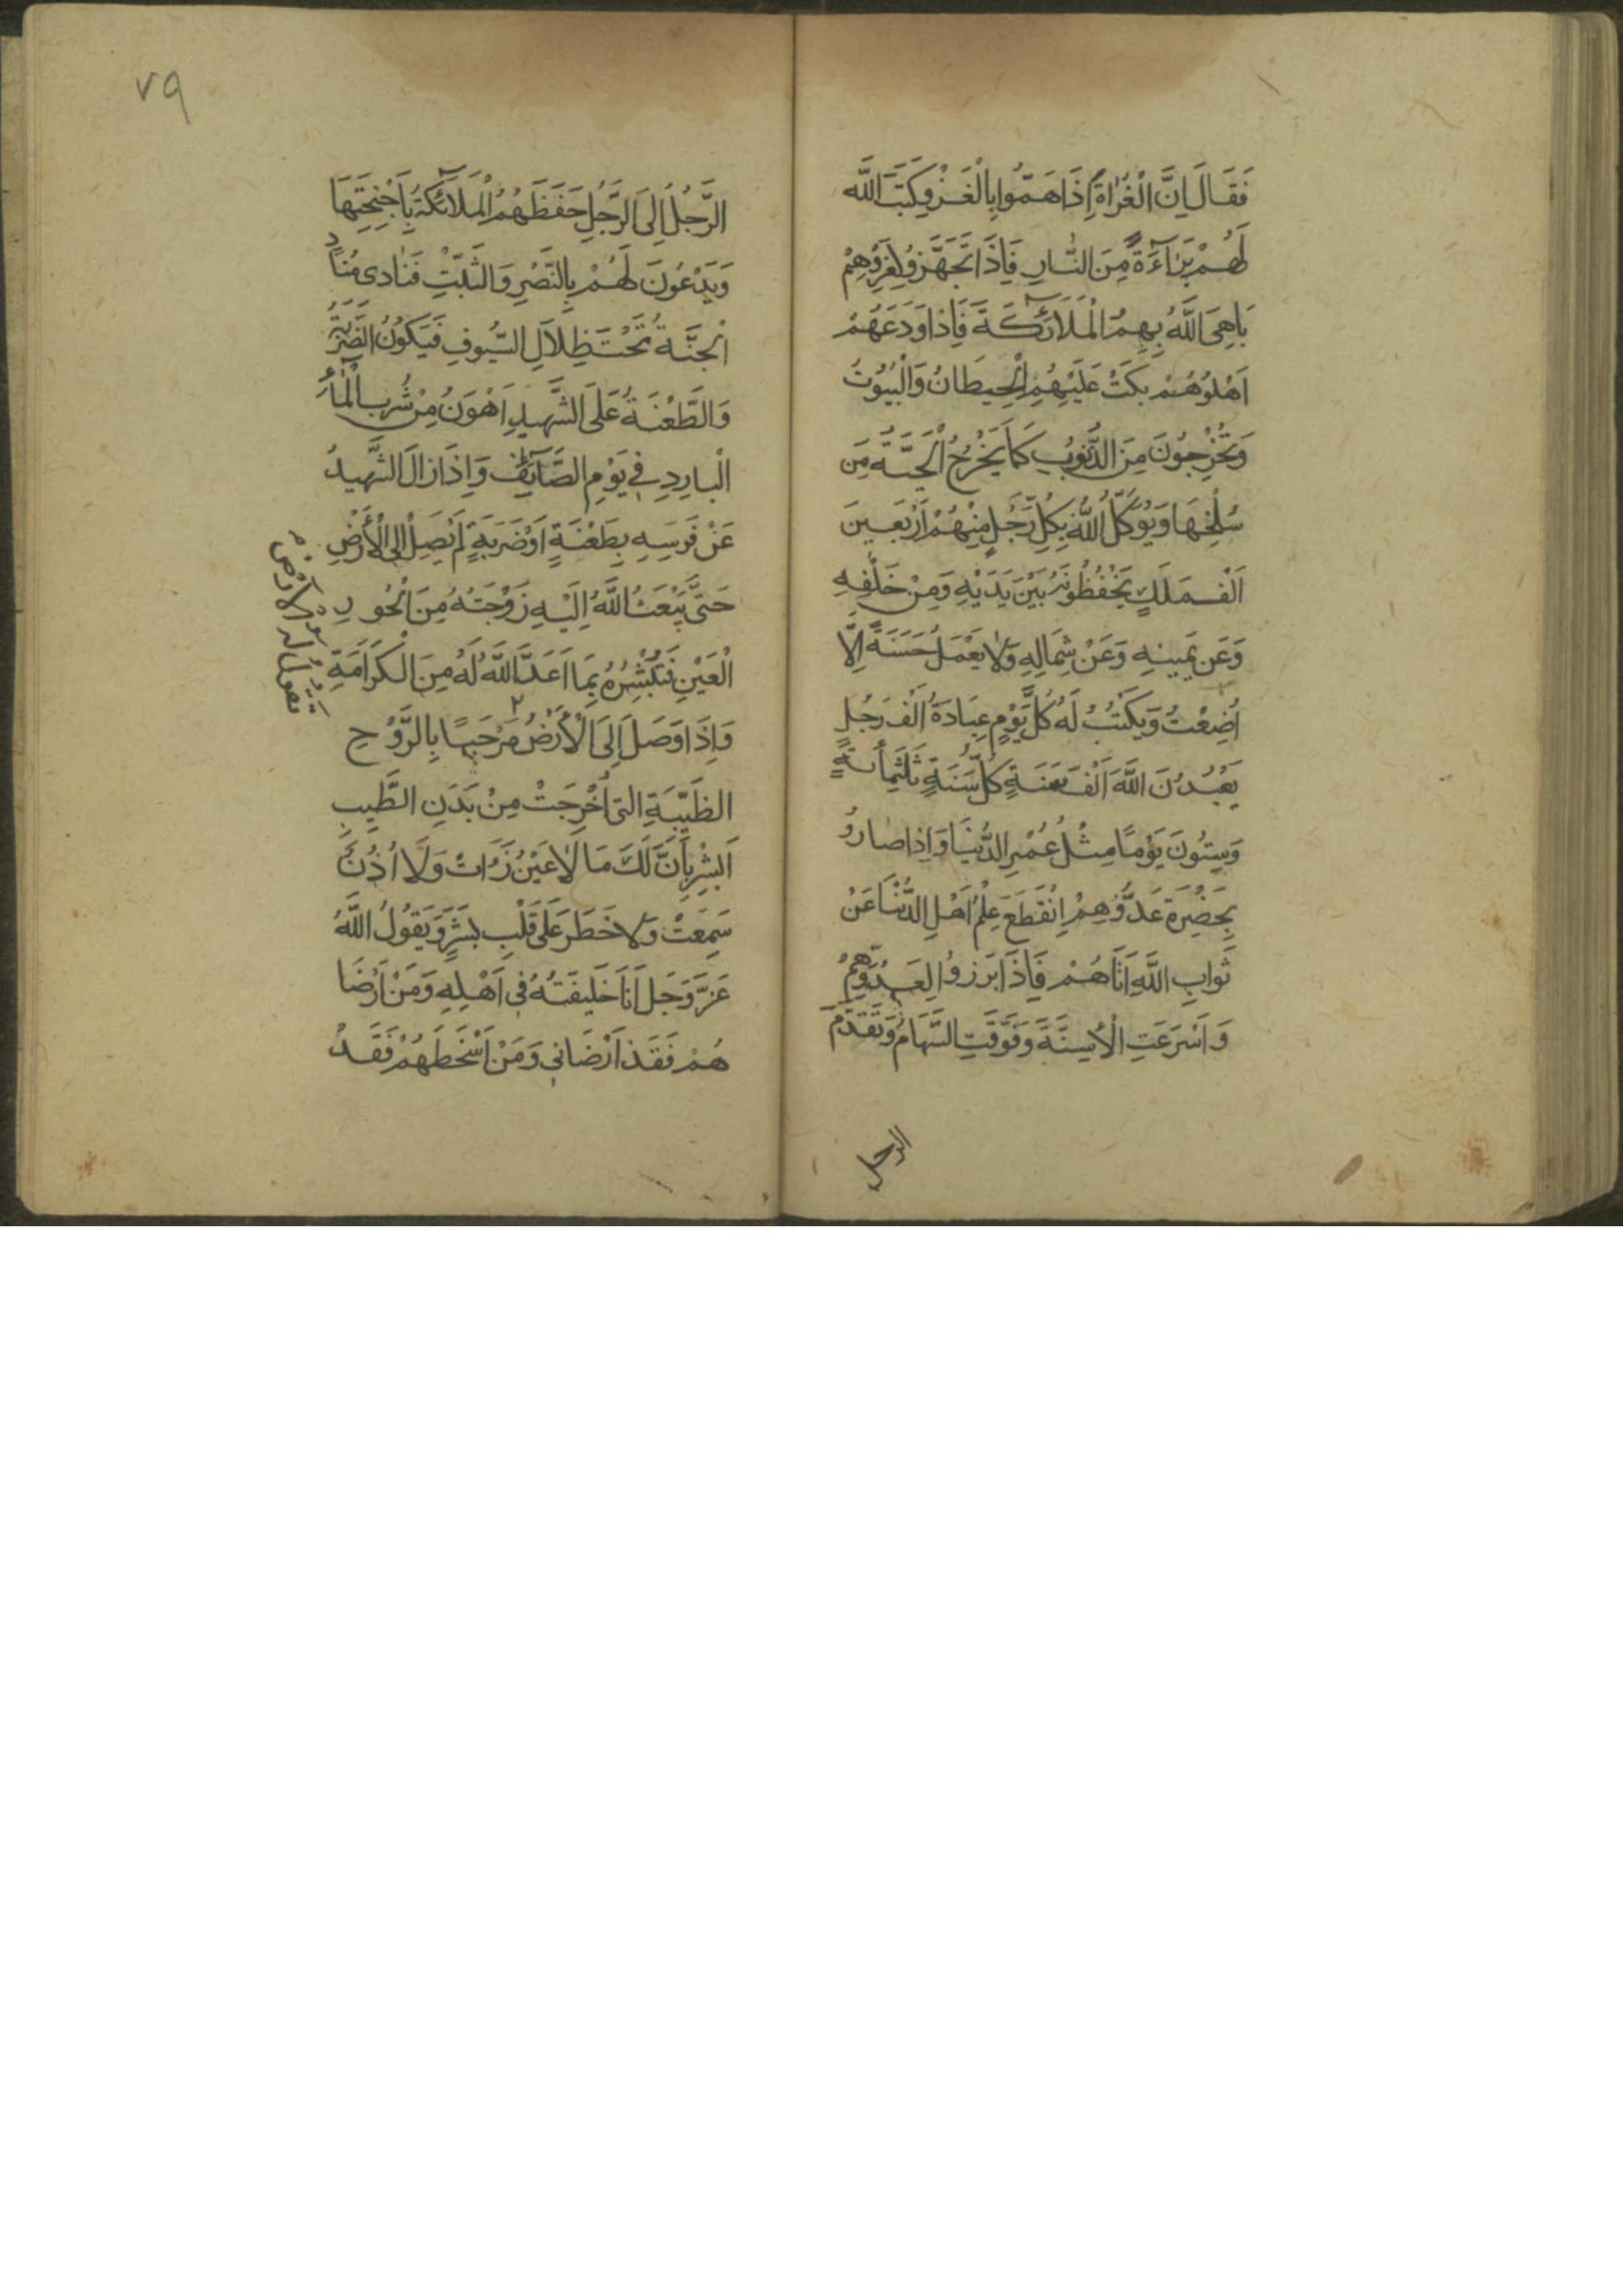 فَقَالَ اِنَّ الْغُزَاةَ اِذَا هَمَّوُا بِالْغَزْوِ كَتَبَ اللّٰه
لَهُمْ بَرَآءَةً مِنَ النَّارِ فَاِذَا تَجَهَّزُوا لِغَزْوِهِمْ
بَاهِیَ اللَّهُ بِهِمُ الْمَلَائِكَةَ فَاِذَا وَدَعَهُمْ
اَهْلُوُهُمْ بَكَتْ عَلَيْهِمُ الْحِيطَانُ وَالْبُيُوُتُ
وَتَخْرِجُونَ مِنَ الذُّنُوبِ كَمَا يَخْرُجُ الْحَيَّةُ مِن
سُلْخِهَا وَيُوَكِّلُ اللّٰهُ بِكُلِّ رَجُلٍ مِنْهُمْ اَرْبَعِينَ
اَلْفَ مَلَكٍ يَحْفُظُونَهُ بَيْنَ يَدَيْهِ وَمِنْ خَلْفِهِ
وَعَن يَمِينِهِ وَعَنْ شِمَالِهِ وَلَا يَعْمَلُ حَسَنَةً اِلَّا
اُضِعْتُ وَيَكْتُبُ لَهُ كُلَّ يَوْمٍ عِبَادَةُ اَلْفَ رَجُلٍ
يَعْبُدُنَ اللَّهَ اَلْفَ سَنَةٍ كُلُّ سَنَةٍ ثَلَثِمِأئةٍ
وَسِتُونَ يَوْمًا مِثْلُ عُمْرِ الدُّنْيَا وَاِذَا صَارُوُ
بِحَضْرَةِ عَدُوِّهِمْ اِنْقَطَعَ عِلْمُ اَهْلِ الدُّنْيَا عَنْ
ثَوَابِ اللَّهِ اِيَّاهُمْ فَاِذَا بَرَزوُا لِعَدُوِّهِمْ
وَاَسْرَعَتِ الْاَسِنَّةَ وَفَوَّقَتِ السَّهَامُ وَتَقَدَّمَ
الرجل
٧٩
الرَّجُلُ اِلیَ الرَّجُلِ حَفَظَهُمُ الْمَلَائِكَةُ بِاَجْنِحَتِهَا
وَيَدْعُونَ لَهُمْ بِالنَّصْرِ وَالثَّبَتِّ فَنَادى مُنَادٍ
اَلْجَنَّةُ تَحْتَ ظِلَالِ السُّيوُفِ فَيَكُونُ الضَّرْبَةُ
وَالطَّعْنَةُ عَلَى الشَّهِيدِ اَهْوَنُ مِنْ شُرْبِ الْمَاءِ
الْبارِدِ فِي يَوْمِ الصَّائِفِ وَاِذَا زالَ الشَّهِيدُ
عَنْ فَرَسِهِ بِطَعْنَةٍ اَوْ ضَرَبَةٍ لَمْ يَصِلْ اِلى الْاَرْضِ
حَتَّى يَبْعَثُ اللَّهُ اِلَيْهِ زَوْجَتُهُ مِنَ الْحُورِ
الْعَيْنِ فَتُبَشِّرُهُ بِمَا اَعَدَّ اللَّهُ لَهُ مِنَ الْكَرَامَةِ
وَاِذَا وَصَلَ اِلَى الْاَرْضُ مَرْحَبًا بِالرَّوُحِ
الطَيِّبَةِ التى اُخْرِجَتْ مِنْ بَدَنِ الطَّيِبِ
اَبْشِرْ بِاَنَّ لَكَ مَا لَا عَيْنُ رَاَتْ وَلَا اُذُنٌ
سَمِعَتْ وَلَا خَطَرَ عَلَى قَلْبِ بَشَرٍ وَيَقُولُ اللَّهُ
عَزَّ وَجَلَ اَنَا خَلِيفَتُهُ فِي اَهْلِهِ وَمَنْ اَرْضَا
هُمْ فَقَدْ اَرْضَانِي وَمَنْ اَسْخَطَهُمْ فَقَدْ
تقول له الارض